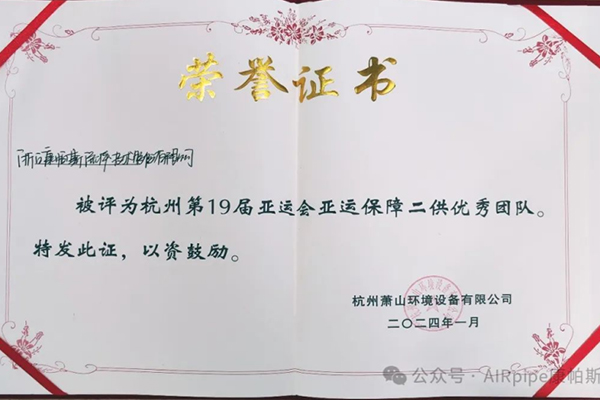 荣誉证书
浙江康帕斯流体技术股份有限公司
被评为杭州第19届亚运会亚运保障二供优秀团队。
特发此证，以资鼓励。
杭州萧山环境设备有限公司
二〇二四年一月
公众号 · AIRpipe康帕斯